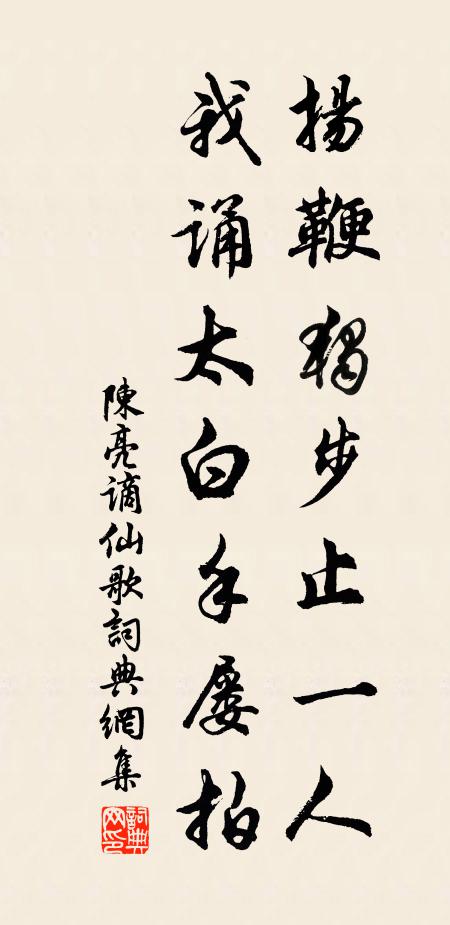 揚鞭獨步止一人
我誦太白手屢拍
陳亮謫仙歌詞典網集
詞典网印